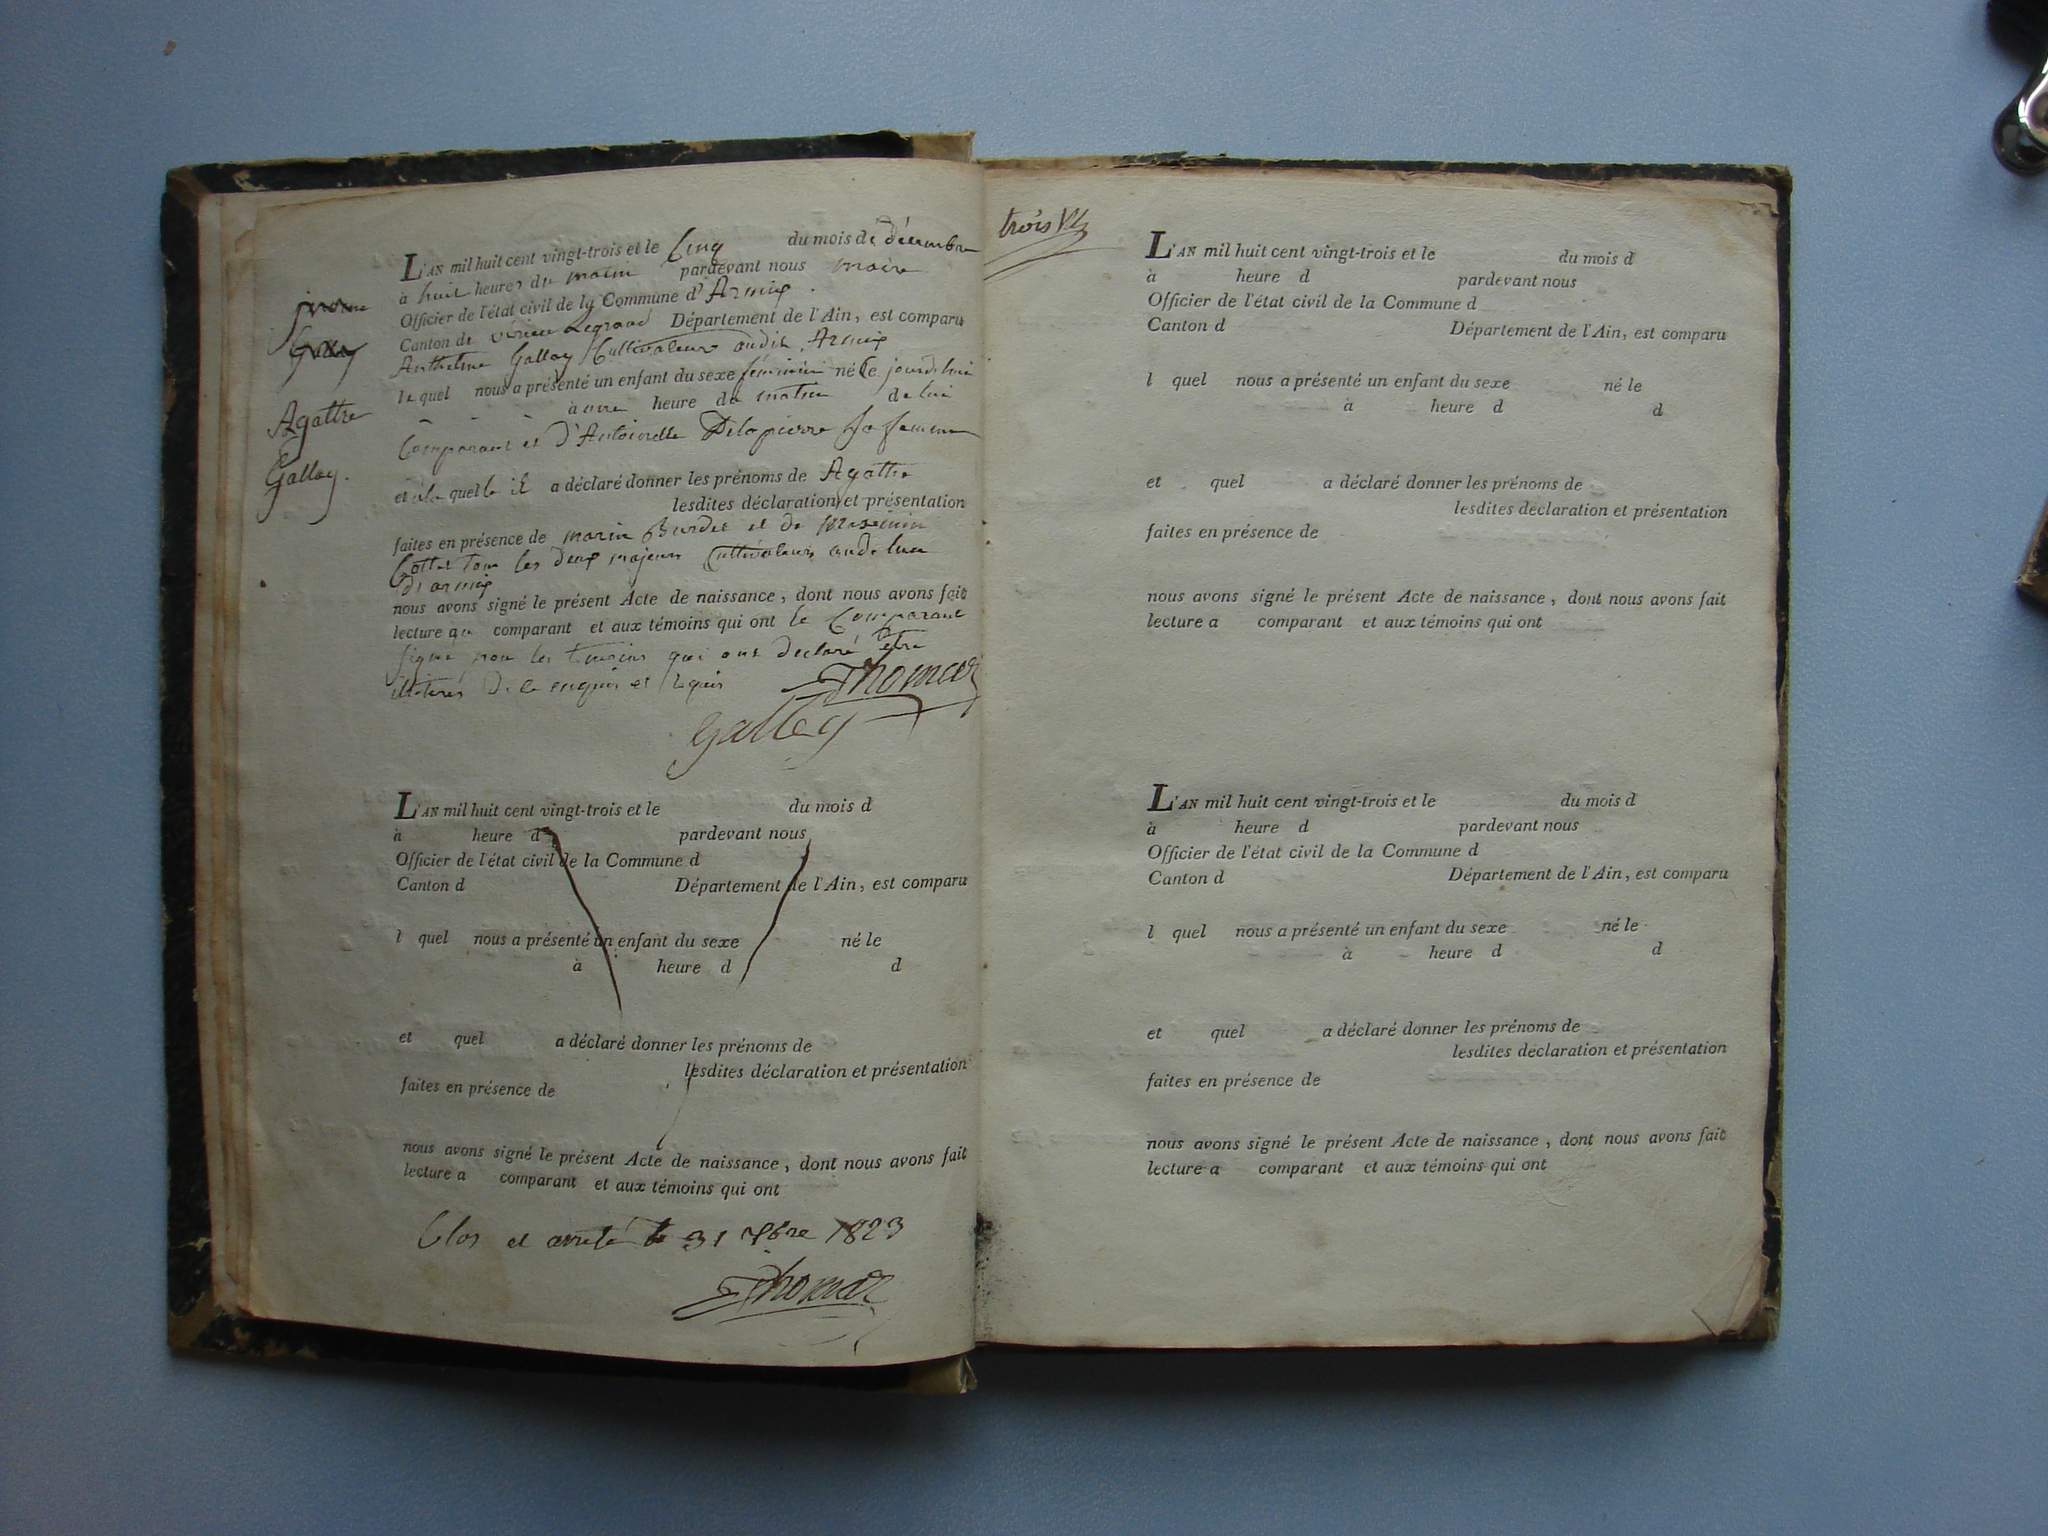 L'AN mil huit cent vingt-trois et le Cinq du mois de décembre
à huit heures du matin pardevant nous maire
Officier de l'état civil de la Commune d'Armix.
Canton de virieu Legrand Département de l'Ain, est comparu
Anthelme Gallay Cultivateur audit Armix
le quel nous a présenté un enfant du sexe féminin né Ce jourdhui
à heure du matin de lui
Comparant et d'Antoinette Delapierre Sa femme
et a la quelle il a déclaré donner les prénoms de Agathe
lesdites déclaration et présentation
faites en présence de marin Burdet et de
Cottet tous les deux majeurs Cultivateurs audit lieu
d'armix
nous avons signé le présent Acte de naissance, dont nous avons fait
lecture au comparant et aux témoins qui ont le Comparant
signé non les temoins qui ont declaré être
illiterés De ce enquis et Requis
Thomas
Gallay
Gallay
Agathe
Gallay.
L'AN mil huit cent vingt-trois et le du mois d
à heure d pardevant nous
Officier de l'état civil de la Commune d
Canton d Département de l'Ain, est comparu
l quel nous a présenté un enfant du sexe né le
à heure d d
et quel a déclaré donner les prénoms de
lesdites déclaration et présentation
faites en présence de
nous avons signé le présent Acte de naissance, dont nous avons fait
lecture a comparant et aux témoins qui ont
Clos et arreté le 31 Xbre 1823
Thomas
trois
L'AN mil huit cent vingt-trois et le du mois d
à heure d pardevant nous
Officier de l'état civil de la Commune d
Canton d Département de l'Ain, est comparu
l quel nous a présenté un enfant du sexe né le
à heure d d
et quel a déclaré donner les prénoms de
lesdites déclaration et présentation
faites en présence de
nous avons signé le présent Acte de naissance, dont nous avons fait
lecture a comparant et aux témoins qui ont
L'AN mil huit cent vingt-trois et le du mois d
à heure d pardevant nous
Officier de l'état civil de la Commune d
Canton d Département de l'Ain, est comparu
l quel nous a présenté un enfant du sexe né le
à heure d d
et quel a déclaré donner les prénoms de
lesdites déclaration et présentation
faites en présence de
nous avons signé le présent Acte de naissance, dont nous avons fait
lecture a comparant et aux témoins qui ont